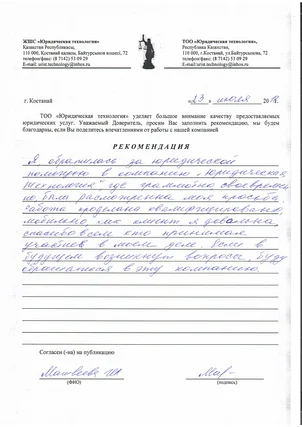 ЖШС «Юридическая технология»
Казахстан Республикасы,
110 000, Костанай қаласы, ул. Байтурсынов көшесі, 72
телефон/факс: (8 7142) 53 09 29
E-mail: urist.technology@inbox.ru
ТОО «Юридическая технология»,
Республика Казахстан,
110000, г. Костанай, ул. Байтурсынова, 72
телефон/факс: (8 7142) 53 09 29
E-mail: urist.technology@inbox.ru
г. Костанай
23 июля
ТОО "Юридическая технология" уделяет большое внимание качеству предоставляемых
юридических услуг. Уважаемый Доверитель, просим Вас заполнить рекомендацию, мы будем
благодарны, если Вы поделитесь впечатлениями от работы с нашей компанией
РЕКОМЕНДАЦИЯ
Я обратилась за юридической
помощью в компанию „Юридическая
Технология" где грамотно своевремен
но была рассмотрена моя просьба
Работа проделана квалифицированно,
мобильно как клиент я довольна
спасибо всем кто принимал
участие в моем деле. Если в
будущем возникнут вопросы, буду
обращаться в эту компанию.
Согласен (-на) на публикацию
Матвеева
(ФИО)
(подпись)